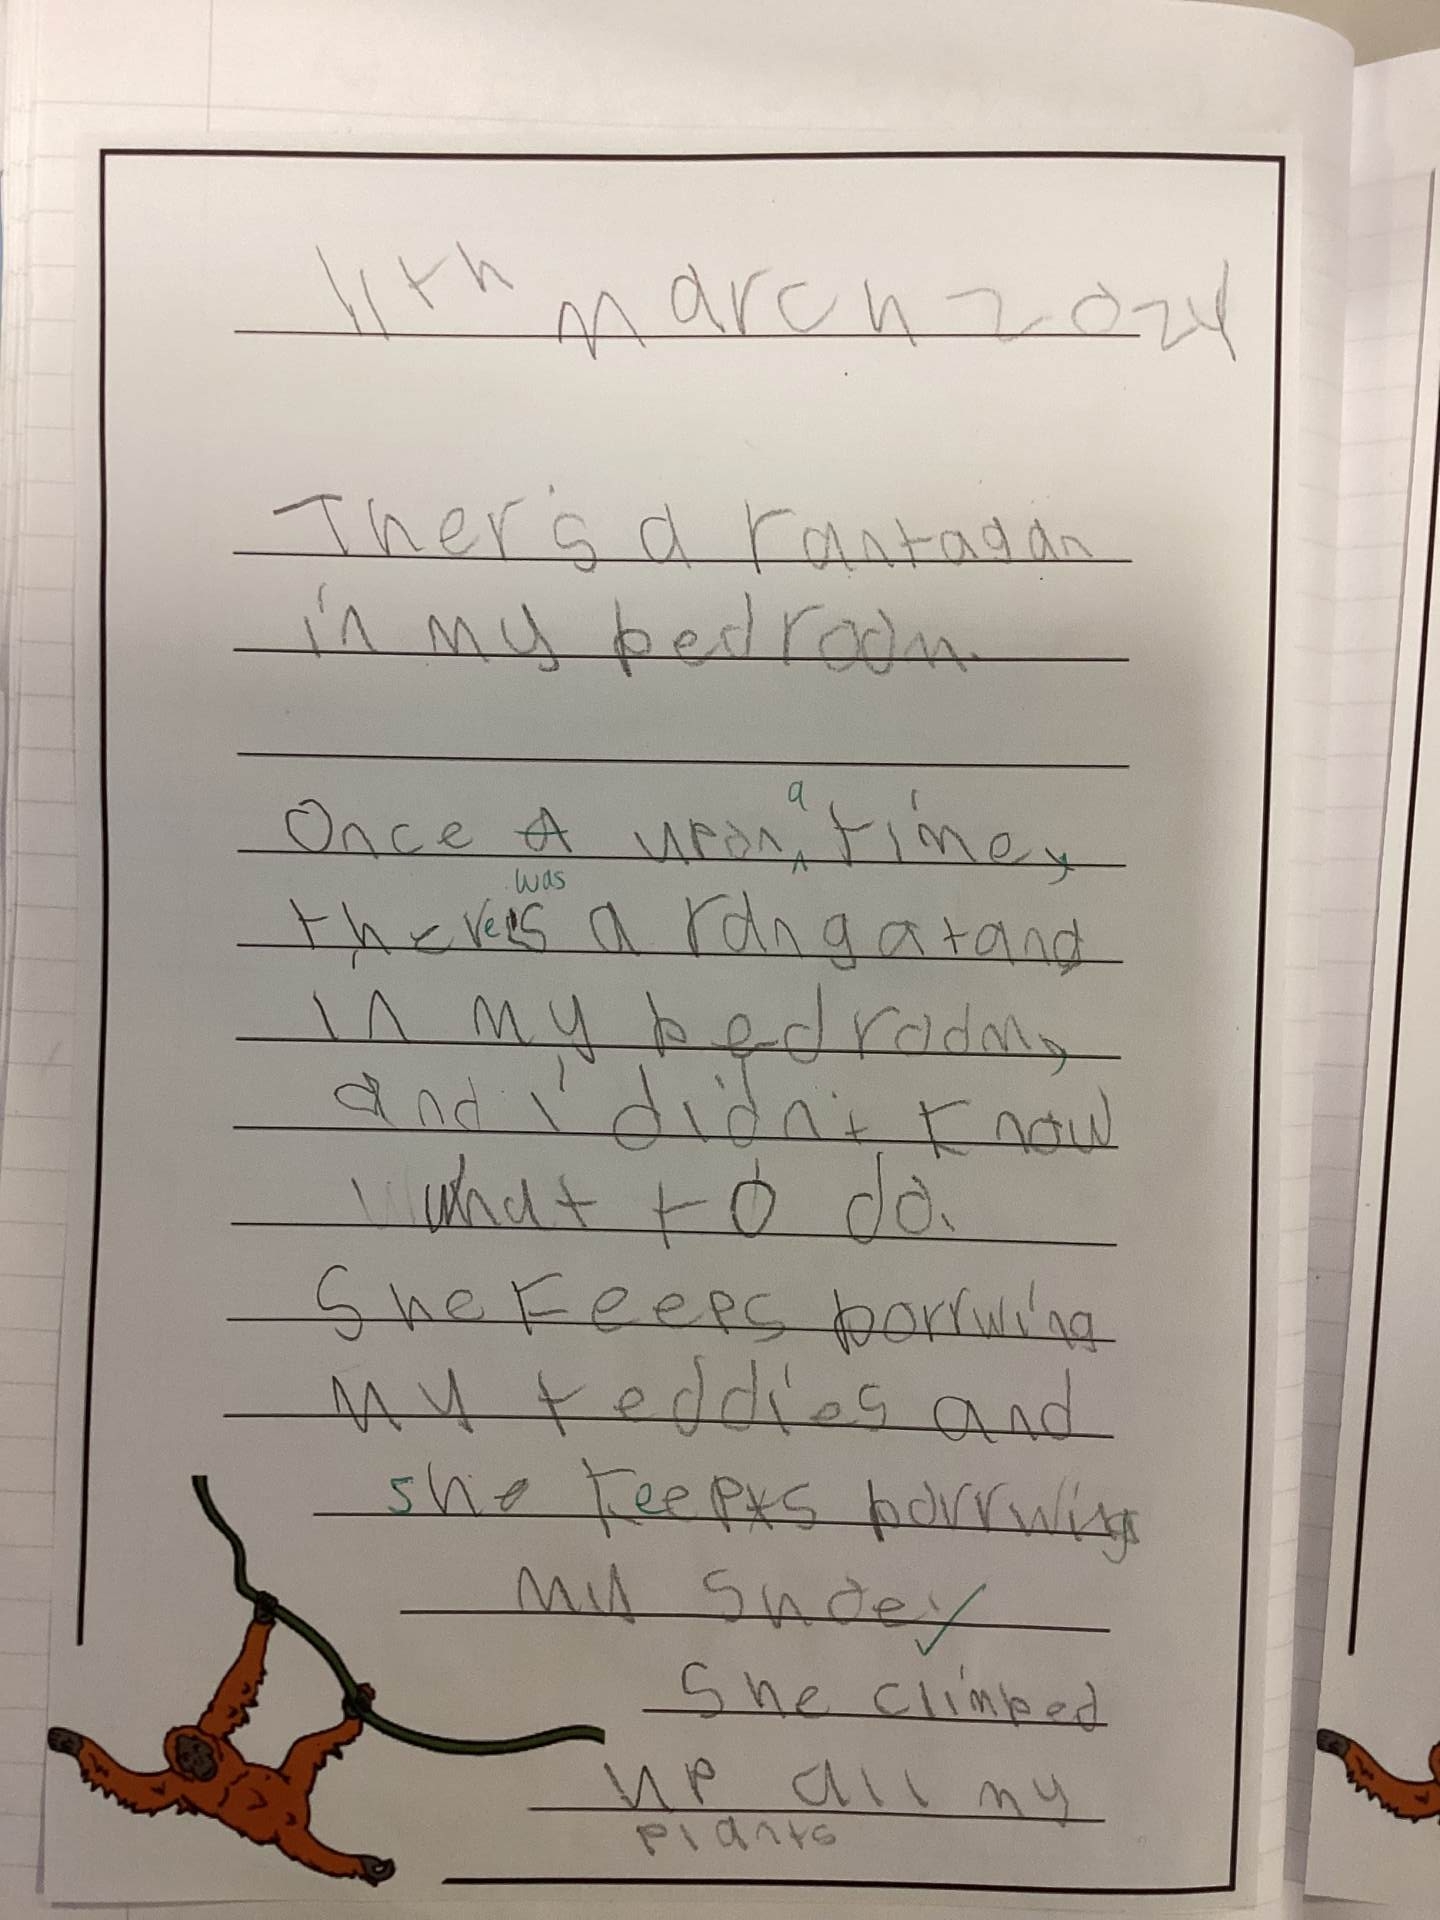 11th March 2024
Ther's a rantagan
in my bedroom.
Once A upon a time,
there's was a rangatand
in my bedroom,
and i didn't know
what to do.
She keeps borrwing
my teddies and
she keeps borrwing
my shoe.
She climbed
up all my
plants